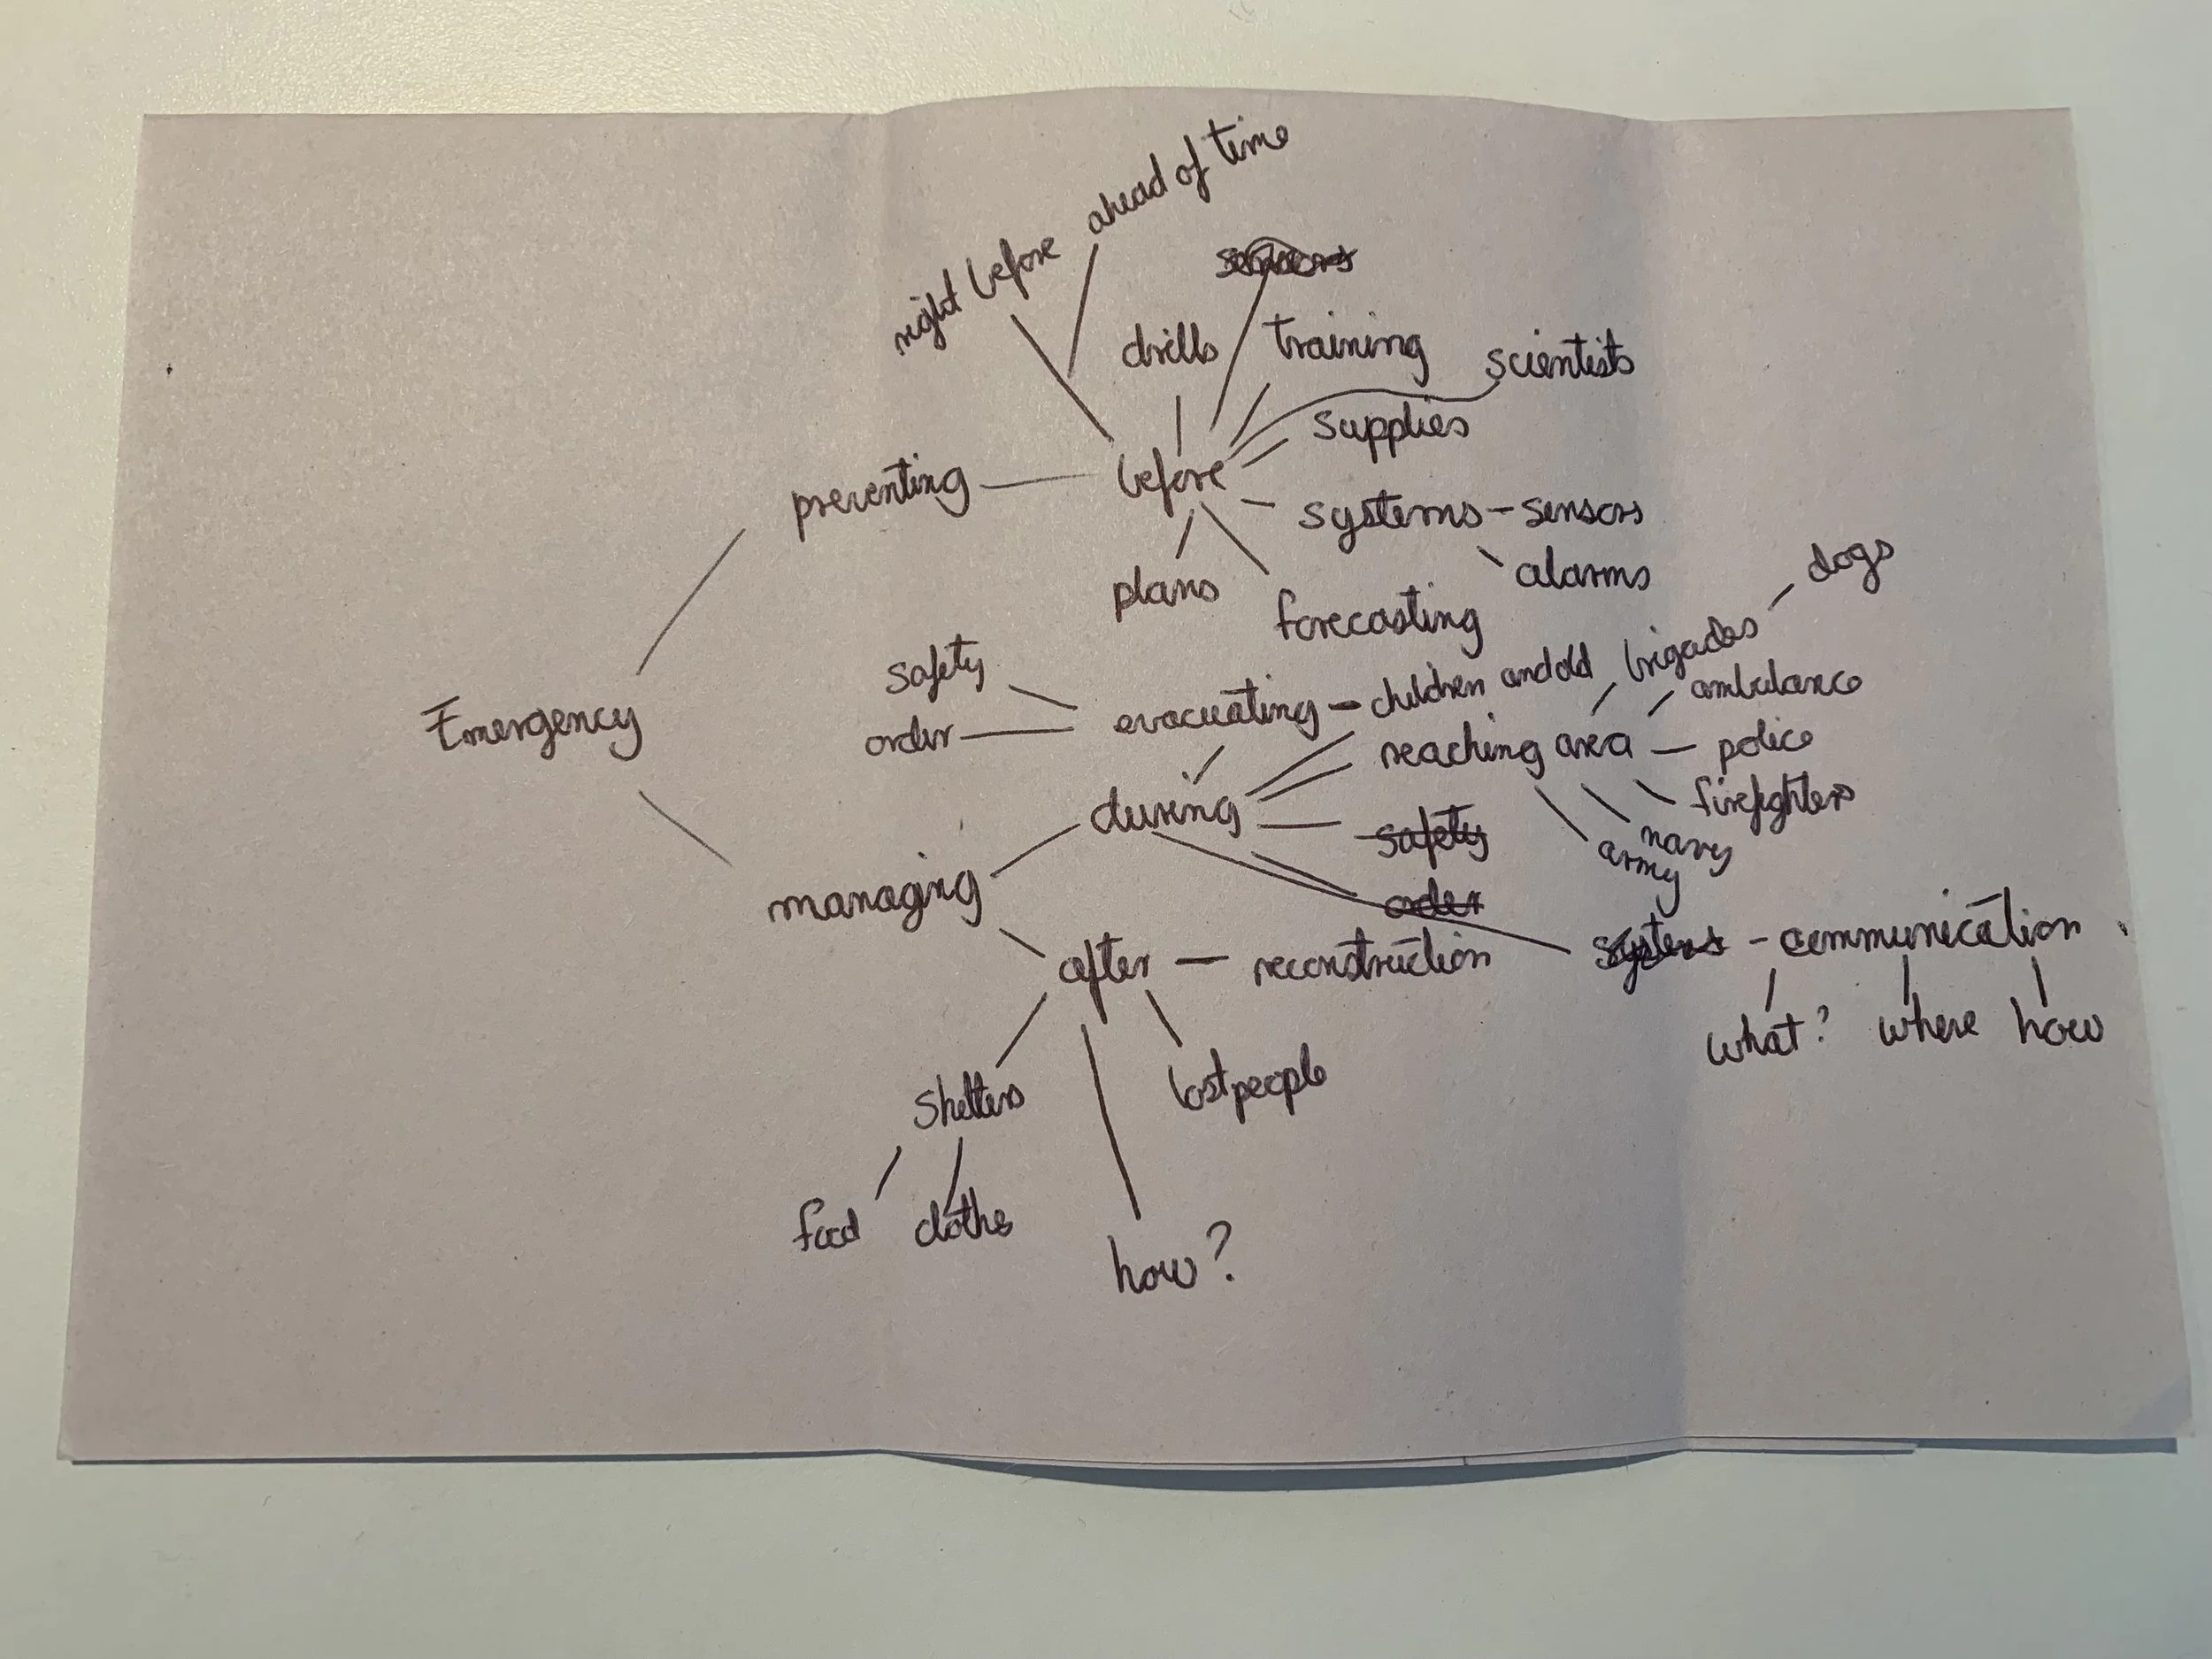 ahead of time
right before
sensors
drills
training
scientists
supplies
preventing
before
systems - sensors
alarms
plans
forecasting
dogs
safety
order
evacuating - children and old
brigades
ambulance
Emergency
reaching area
police
firefighters
navy
army
during
safety
order
managing
systems - communication
what? where how
after
reconstruction
shelters
lost people
food
cloths
how?